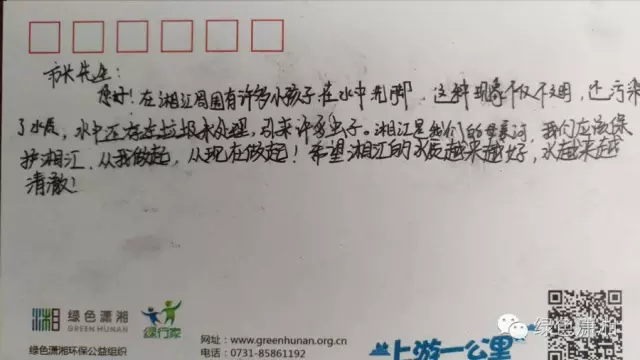 市长先生:
您好!在湘江周围有许多小孩子在水中洗脚.这种现象不仅不文明,还污染
了水质,水中还存在垃圾未处理,引来许多虫子。湘江是我们的母亲河,我们应该保
护湘江,从我做起,从现在做起!希望湘江的水质越来越好,水越来越
清澈!
湘 绿色潇湘 GREEN HUNAN
绿行家
绿色潇湘环保公益组织
网址:www.greenhunan.org.cn
电话:0731-85861192
上游一公里
绿色潇湘